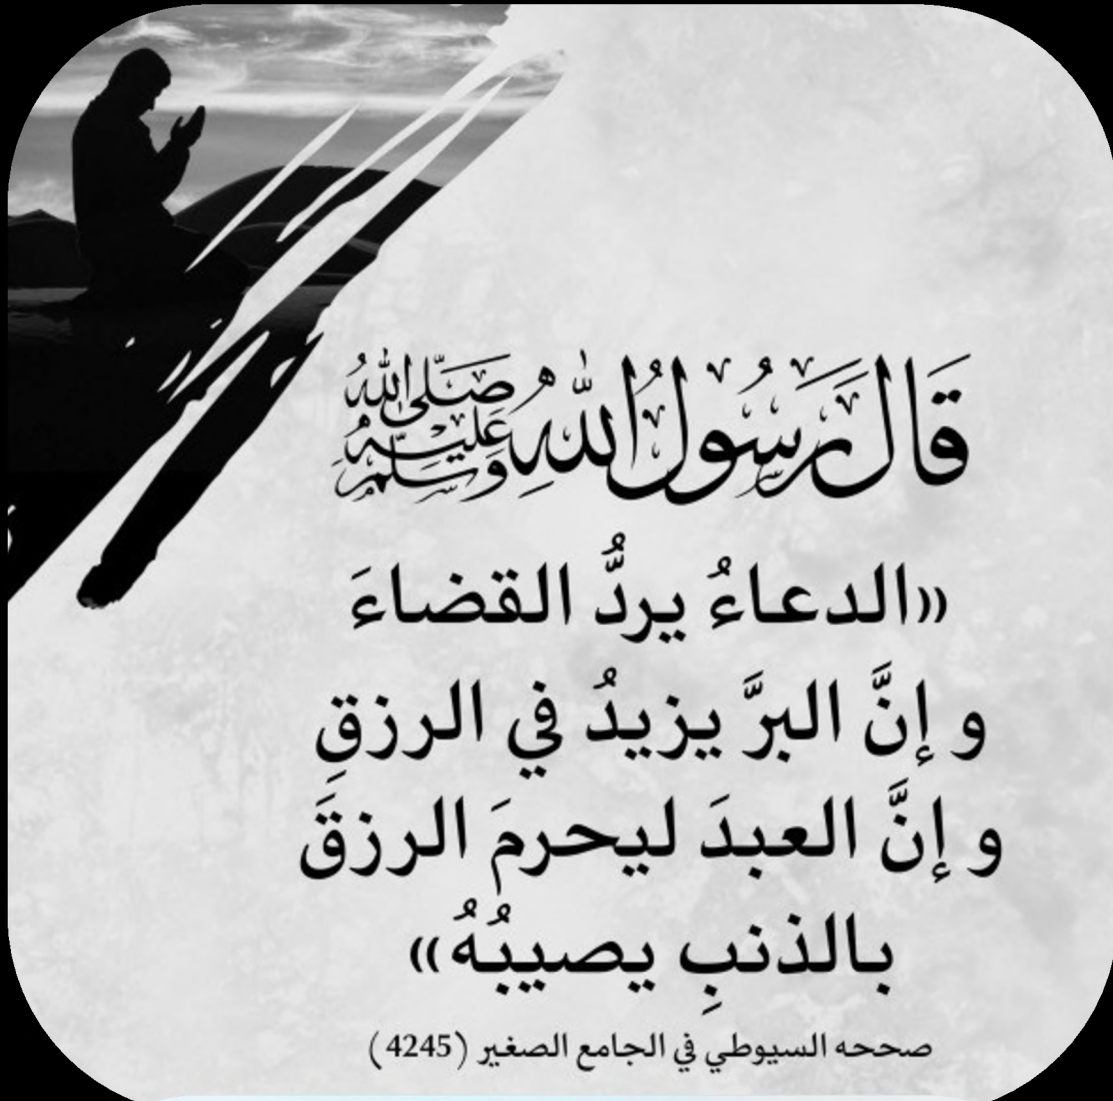 قَالَ رَسُولُ اللهِ صَلَّى اللهُ عَلَيْهِ وَسَلَّمَ
«الدعاءُ يردُّ القضاءَ
و إنَّ البرَّ يزيدُ في الرزقِ
و إنَّ العبدَ ليحرمَ الرزقَ
بالذنبِ يصيبُهُ»
صححه السيوطي في الجامع الصغير (4245)